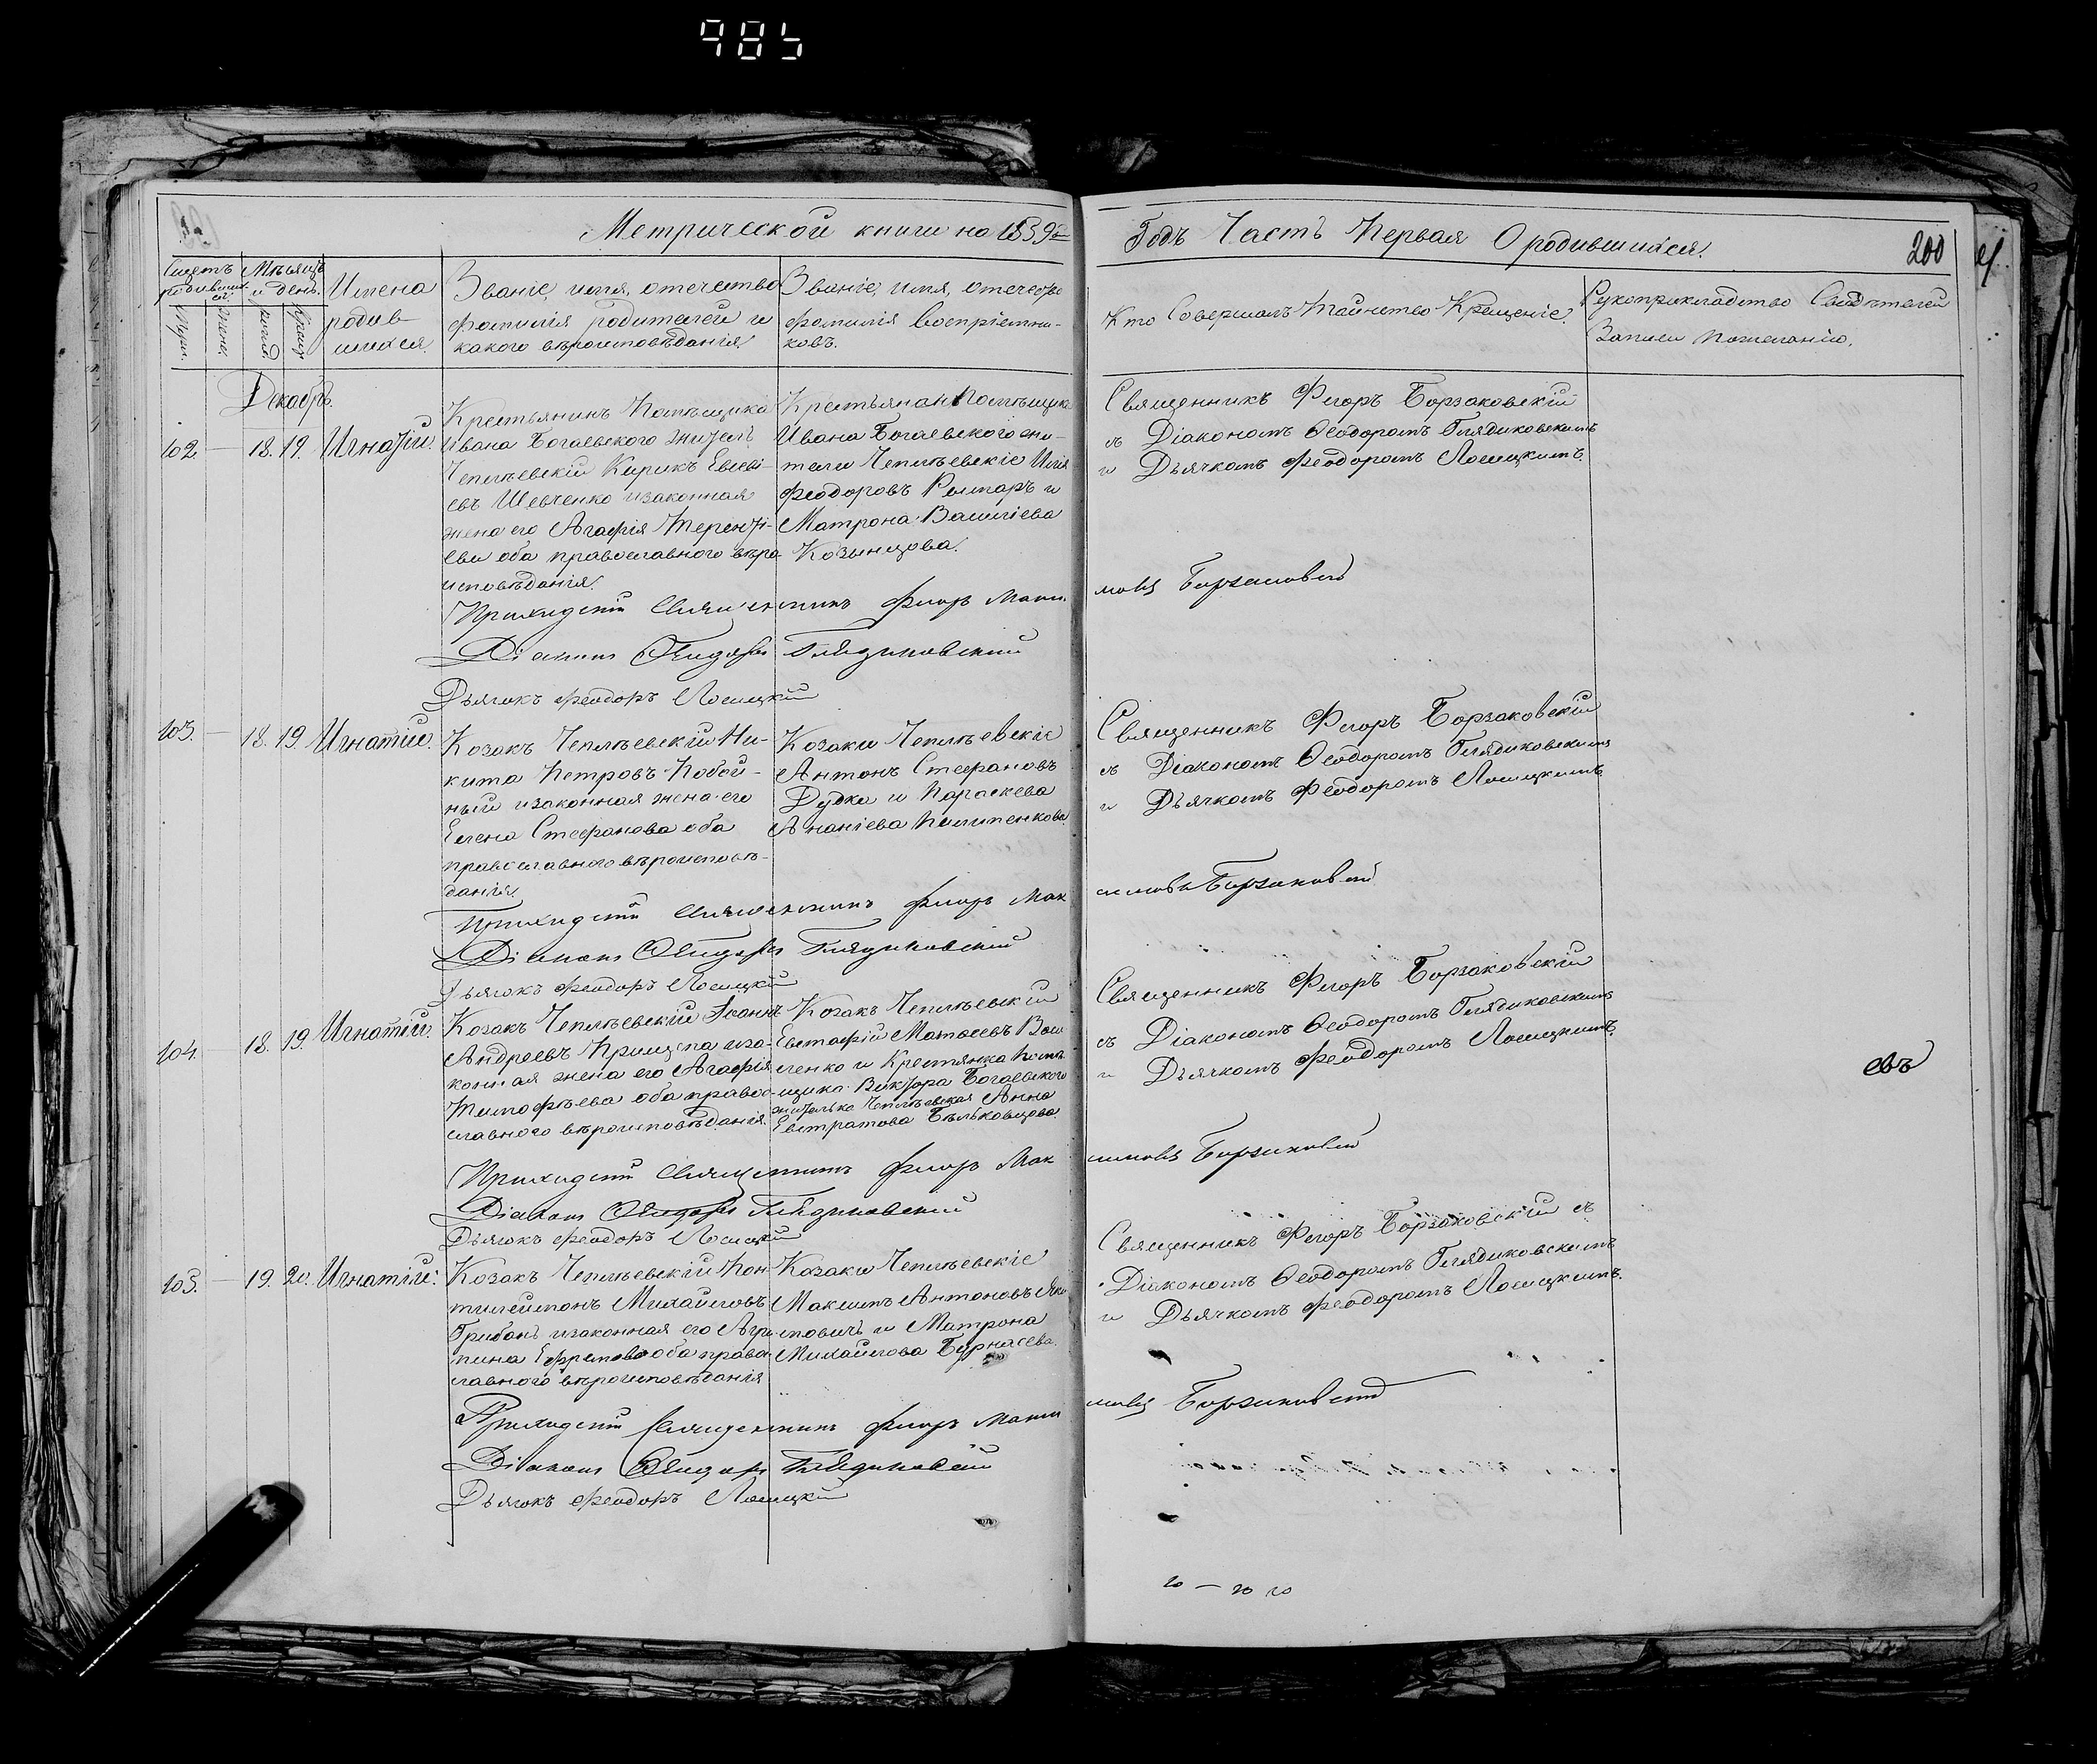 985
Метрической книги на 1839й
Годъ Часть Первая О родившихся.
200
Щетъ родившихся
Мѣсяцъ и день.
Имена родившихся.
Званіе, имя, отечество фамилія родителей и какого вѣроисповѣданія
Званіе, имя, отечество фамилія Воспріемниковъ.
Кто Совершалъ Таинство Крещеніе.
Рукоприкладство Свидѣтелей Записи по желанію.
Муж.
Женс.
Декабрь.
102 — 18. 19. Игнатій.
Крестьянинъ Помѣщика
Ивана Богаевского житель
Чеплѣевскій Кирикъ Евсеві-
евъ Шевченко изаконная
жена его Агафія Теренті-
ева оба православного вѣро
исповѣданія.
Крестьянан Помѣщика
Ивана Богаевского жи-
тели Чеплѣевскіе Илія
Феодоровъ Рымаръ и
Матрона Василіева
Козынцова.
Священникъ Флоръ Борзаковскій
съ Діакономъ Ѳеодоромъ Глядиковскимъ
и Дьячкомъ Феодоромъ Лосицкимъ.
Приходскій Священникъ Флоръ Макси
мовъ Борзаковскій
Діаконъ Ѳеодоръ Глядиковский
Дьячокъ Феодоръ Лосицкій
103. — 18. 19. Игнатій.
Козакъ Чеплѣевскій Ни-
кита Петровъ Побой-
ный изаконная жена его
Елена Стефанова оба
православного вѣроисповѣ-
данія
Козаки Чеплѣевскіе
Антонъ Стефановъ
Дудка и Параскева
Ананіева Пилипенкова
Священникъ Флоръ Борзаковскій
съ Діакономъ Ѳеодоромъ Глядиковскимъ
и Дьячкомъ Феодоромъ Лосицкимъ
Приходскій Священникъ Флоръ Мак
симовъ Борзаковскій
Діаконъ Ѳеодоръ Глядиковский
Дьячокъ Феодоръ Лосицкій
104. 18. 19. Игнатій.
Козакъ Чеплѣевскій Іоаннъ
Андреевъ Прищепа иза-
конная жена его Агафія
Тимофѣева оба право-
славного вѣроисповѣданія.
Козакъ Чеплѣевскій
Евстафій Матѳеевъ Васи
ленко и Крестянка Помѣ
щика Виктора Богаевского
жителька Чеплѣевская Анна
Евстратова Бѣльковцова.
Священникъ Флоръ Борзаковскій
съ Діакономъ Ѳеодоромъ Глядиковскимъ
и Дьячкомъ Феодоромъ Лосицкимъ.
евъ
Приходскій Священникъ Флоръ Мак
симовъ Борзаковскій
Діаконъ Ѳеодоръ Глядиковский
Дьячокъ Феодоръ Лосицкій
105. — 19. 20. Игнатій.
Козакъ Чеплѣевскій Пан
тилеймонъ Михайловъ
Грибанъ изаконная его Агри
пина Ефремова оба право
славного вѣроисповѣданія
Козаки Чеплѣевскіе
Максимъ Антоновъ Яки
мовичъ и Матрона
Михайлова Бурнасева.
Священникъ Флоръ Борзаковскій съ
Діакономъ Ѳеодоромъ Глядиковскимъ
и Дьячкомъ Феодоромъ Лосицкимъ.
Приходскій Священникъ Флоръ Макси
мовъ Борзаковскій
Діаконъ Ѳеодоръ Глядиковскій
Дьячокъ Феодоръ Лосицкій